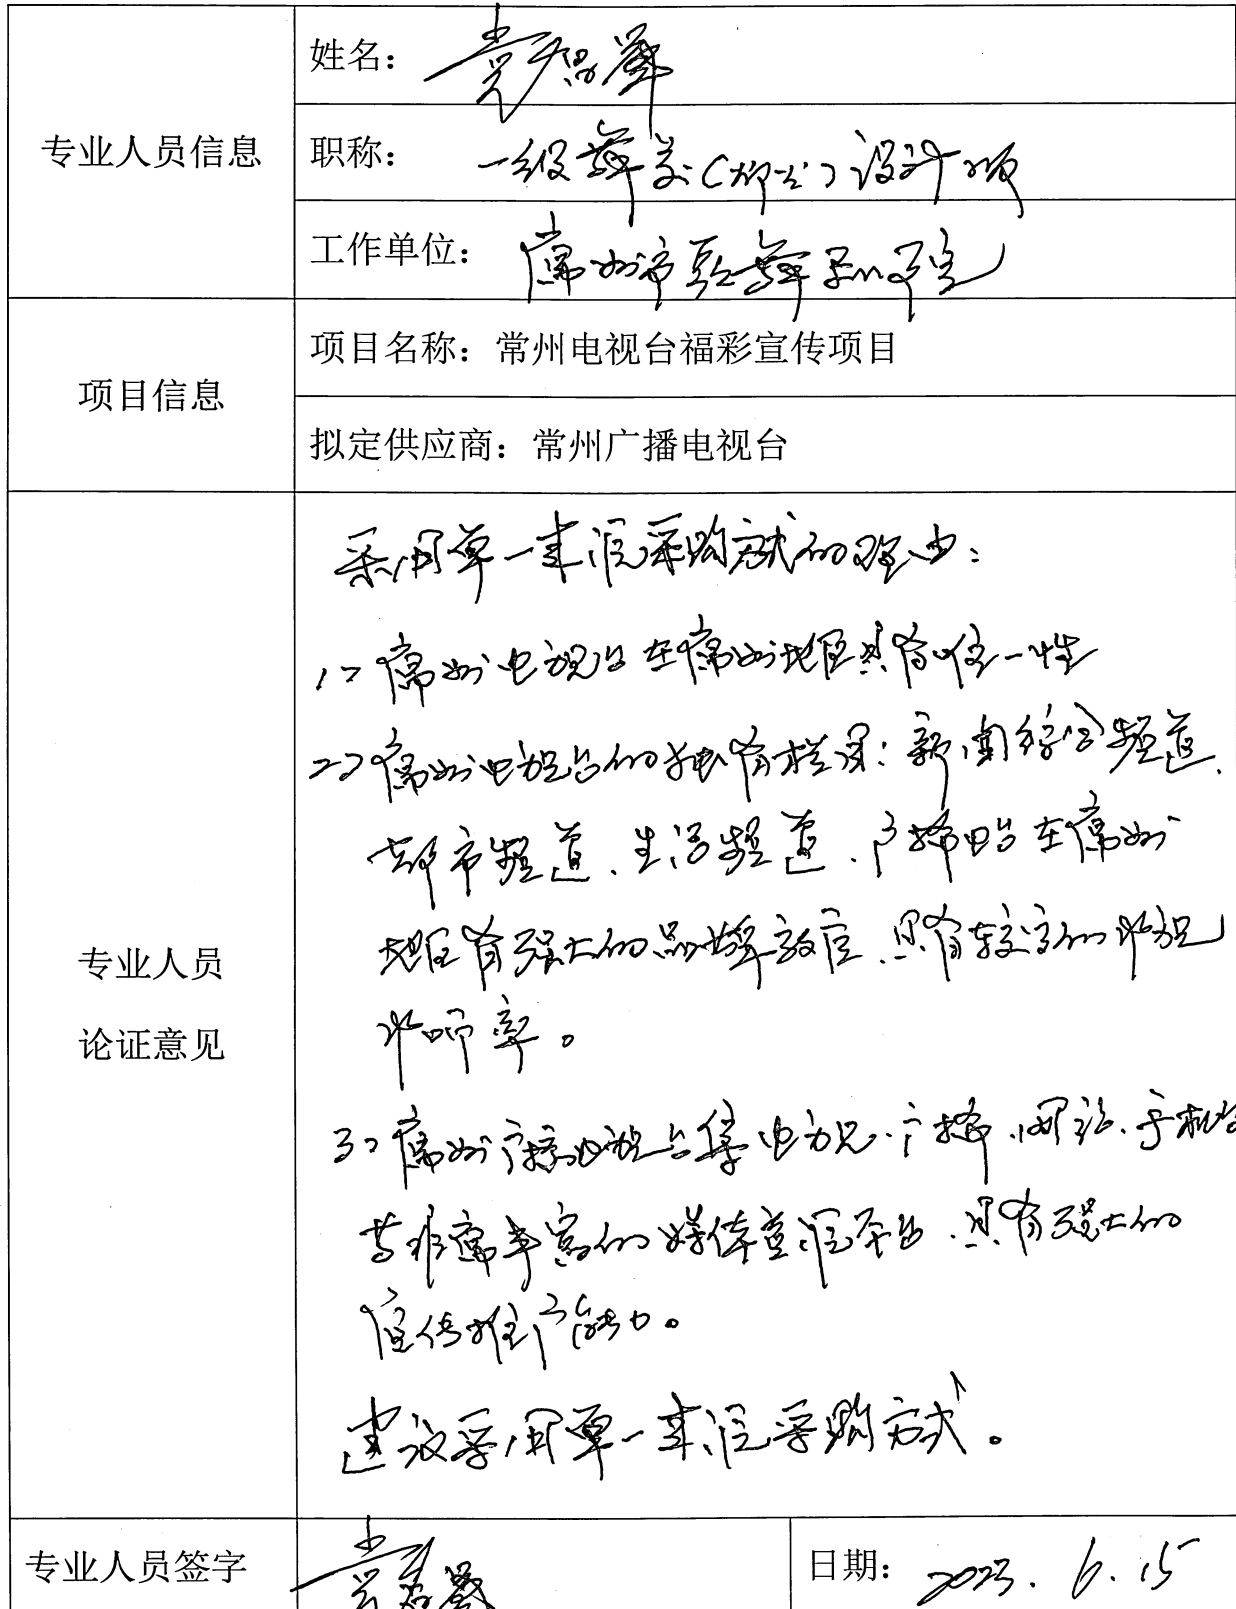 姓名：
专业人员信息
职称： 一级舞美（）设计师
工作单位： 常州市歌舞剧院
项目名称：常州电视台福彩宣传项目
项目信息
拟定供应商：常州广播电视台
采用单一来源采购方式的理由：
1、常州电视台在常州地区具有唯一性
2、常州电视台的独有栏目：新闻综合频道、
都市频道、生活频道、广播电台在常州
地区有强大的品牌效应、具有较高的收视
收听率。
专业人员
论证意见
3、常州广播电视台集电视、广播、网站、手机台
等非常丰富的媒体资源平台、具有强大的
宣传推广能力。
建议采用单一来源采购方式。
专业人员签字
日期： 2023.6.15